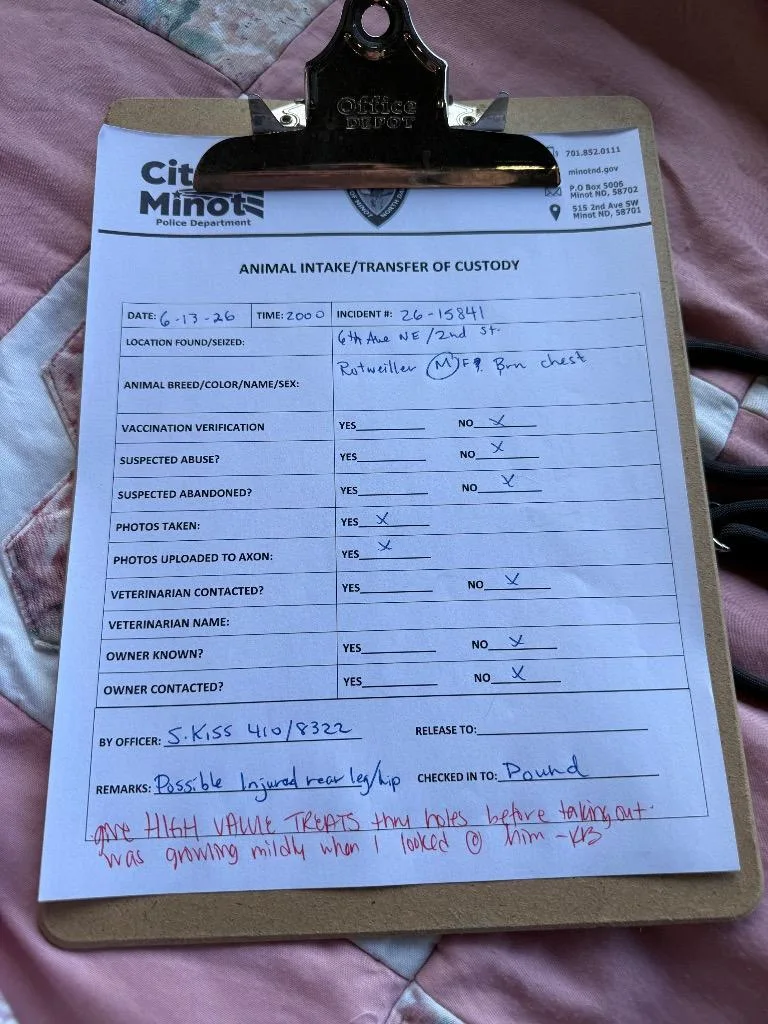 Office
DEPOT
Cit
Minot
Police Department
OF MINOT
NORTH
701.852.0111
minotnd.gov
P.O Box 5006
Minot ND, 58702
515 2nd Ave SW
Minot ND, 58701
ANIMAL INTAKE/TRANSFER OF CUSTODY
DATE: 6-13-26 TIME: 2000 INCIDENT #: 26-15841
LOCATION FOUND/SEIZED: 6th Ave NE/2nd St.
ANIMAL BREED/COLOR/NAME/SEX: Rotweiller M F Brn chest
VACCINATION VERIFICATION YES NO X
SUSPECTED ABUSE? YES NO X
SUSPECTED ABANDONED? YES NO X
PHOTOS TAKEN: YES X
PHOTOS UPLOADED TO AXON: YES X
VETERINARIAN CONTACTED? YES NO X
VETERINARIAN NAME:
OWNER KNOWN? YES NO X
OWNER CONTACTED? YES NO X
BY OFFICER: S. KISS 410/8322 RELEASE TO:
REMARKS: Possible Injured rear leg/hip CHECKED IN TO: Pound
give HIGH VALUE TREATS thru holes before taking out.
was growling mildly when I looked @ him -KB